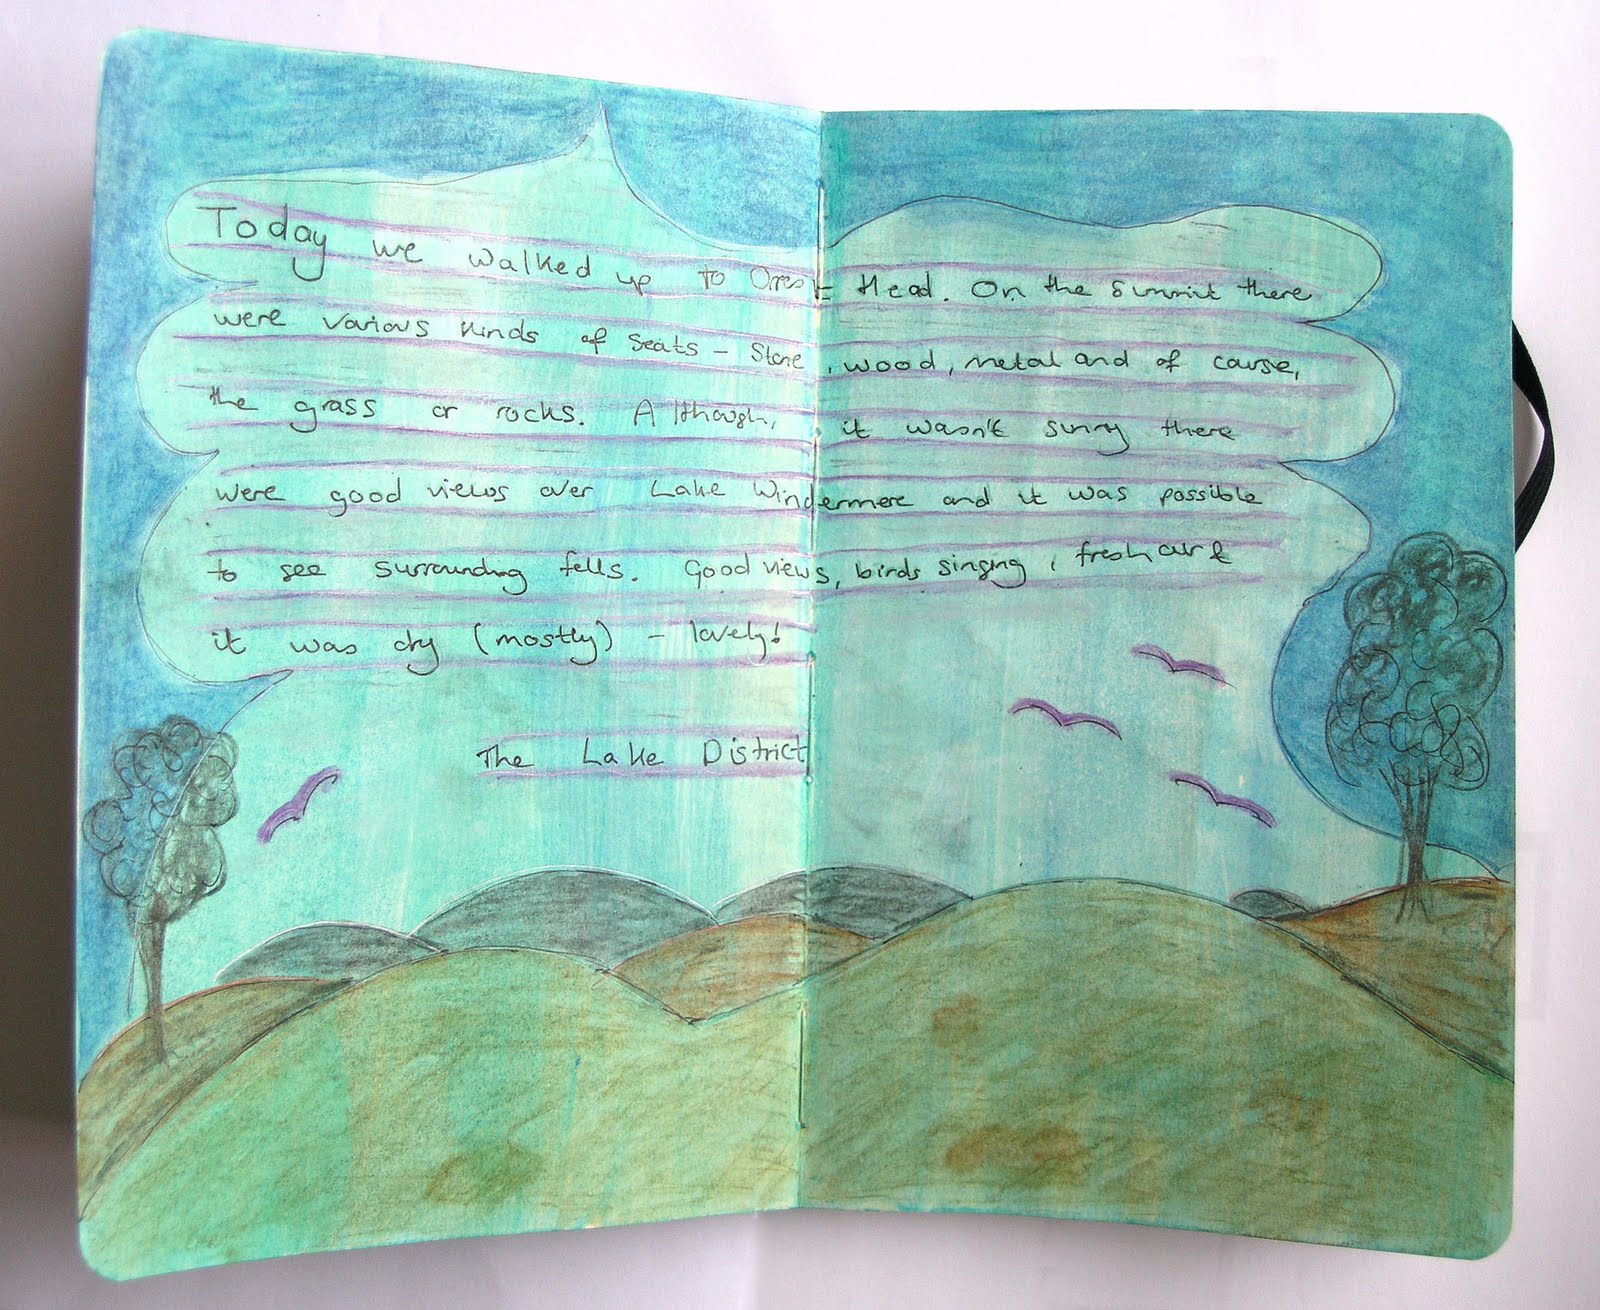 Today we walked up to Orrest Head. On the summit there
were various kinds of seats – stone, wood, metal and of course,
the grass or rocks. Although, it wasn't sunny there
were good views over Lake Windermere and it was possible
to see surrounding fells. Good views, birds singing, fresh air &
it was dry (mostly) – lovely!
The Lake District